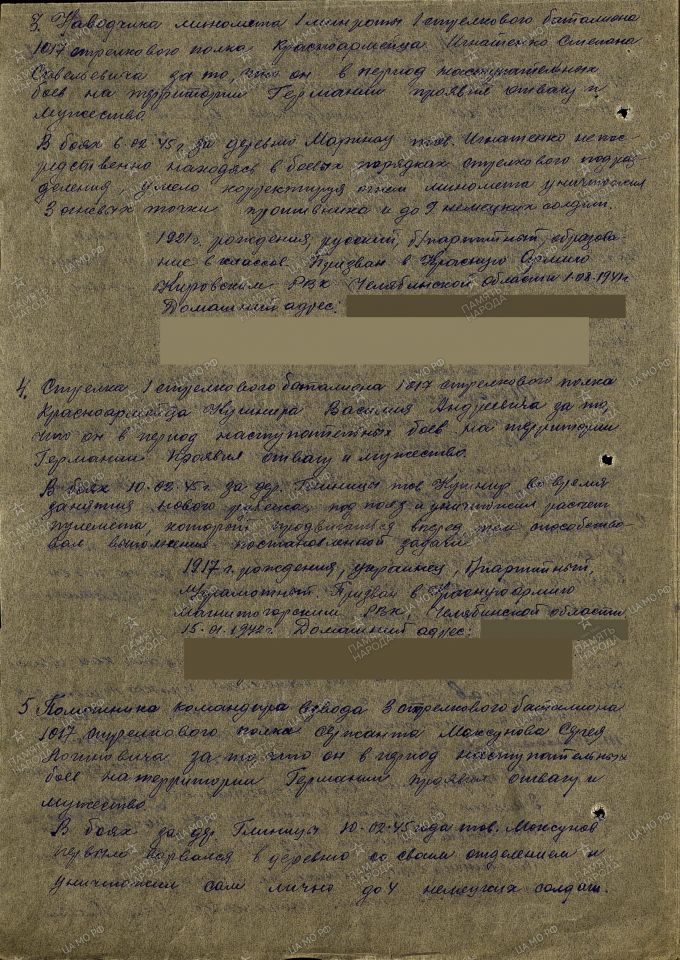 3. Наводчика миномета 1 минроты 1 стрелкового баталиона
1017 стрелкового полка Красноармейца Игнатенко Степана
Савельевича за то, что он в период наступательных
боев на территории Германии проявил отвагу и
мужество.
В боях 6.02.45 г. за деревню Мартнау тов. Игнатенко непос-
редственно находясь в боевых порядках стрелкового подраз-
деления, умело корректируя огнем миномета уничтожил
3 огневых точки противника и до 9 немецких солдат.
1921 г. рождения, русский, б/партийный, образова-
ние 6 классов. Призван в Красную Армию
Кировским РВК Челябинской области 1.08.1941 г
Домашний адрес:
4. Стрелка 1 стрелкового баталиона 1017 стрелкового полка
Красноармейца Кушнира Василия Андреевича за то,
что он в период наступательных боев на территории
Германии проявил отвагу и мужество.
В боях 10.02.45 г. за дер. Глиницы тов. Кушнир во время
занятия нового рубежа, под полз и уничтожил расчет
пулемета, которой продвигаться вперед тем способство-
вал выполнения поставленной задачи.
1917 г. рождения, украинец, б/партийный,
Призван в Красную армию
Магнитогорским РВК, Челябинской области
15.01.1942 г. Домашний адрес:
5 Помошника командира взвода 3 стрелкового баталиона
1017 стрелкового полка Сержанта Моксунова Сергея
за то что он в период наступательных
боев на территории Германии проявил отвагу и
мужество
В боях за дер. Глиницы 10.02.45 года тов. Моксунов
первым ворвался в деревню со своим отделением и
уничтожил сам лично до 4 немецких солдат.